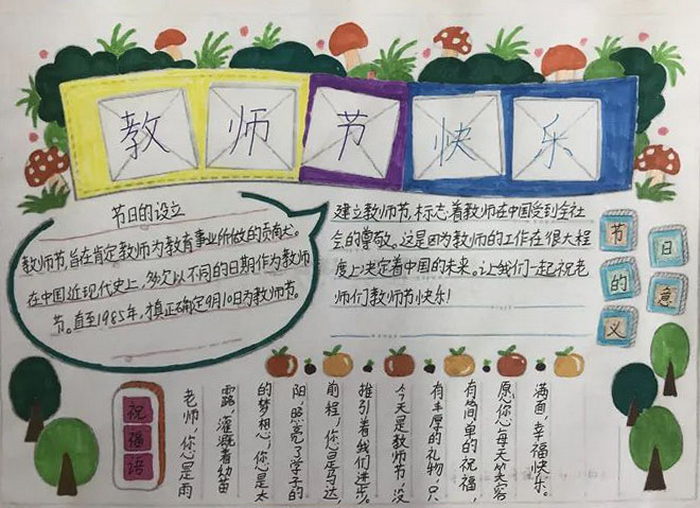 教师节快乐
节日的设立
教师节,旨在肯定教师为教育事业所做的贡献大。
在中国近现代史上,多次以不同的日期作为教师
节。直至1985年,才真正确定9月10日为教师节。
建立教师节,标志着教师在中国受到全社
会的尊敬。这是因为教师的工作在很大程
度上决定着中国的未来。让我们一起祝老
师们教师节快乐!
节日的意义
祝福语
老师,您是雨
露,灌溉着幼苗
的梦想心,您是太
阳,照亮了学子的
前程,您是马达,
推引着我们进步。
今天是教师节,没
有丰厚的礼物,只
有简单的祝福,
愿您每天笑容
满面,幸福快乐。